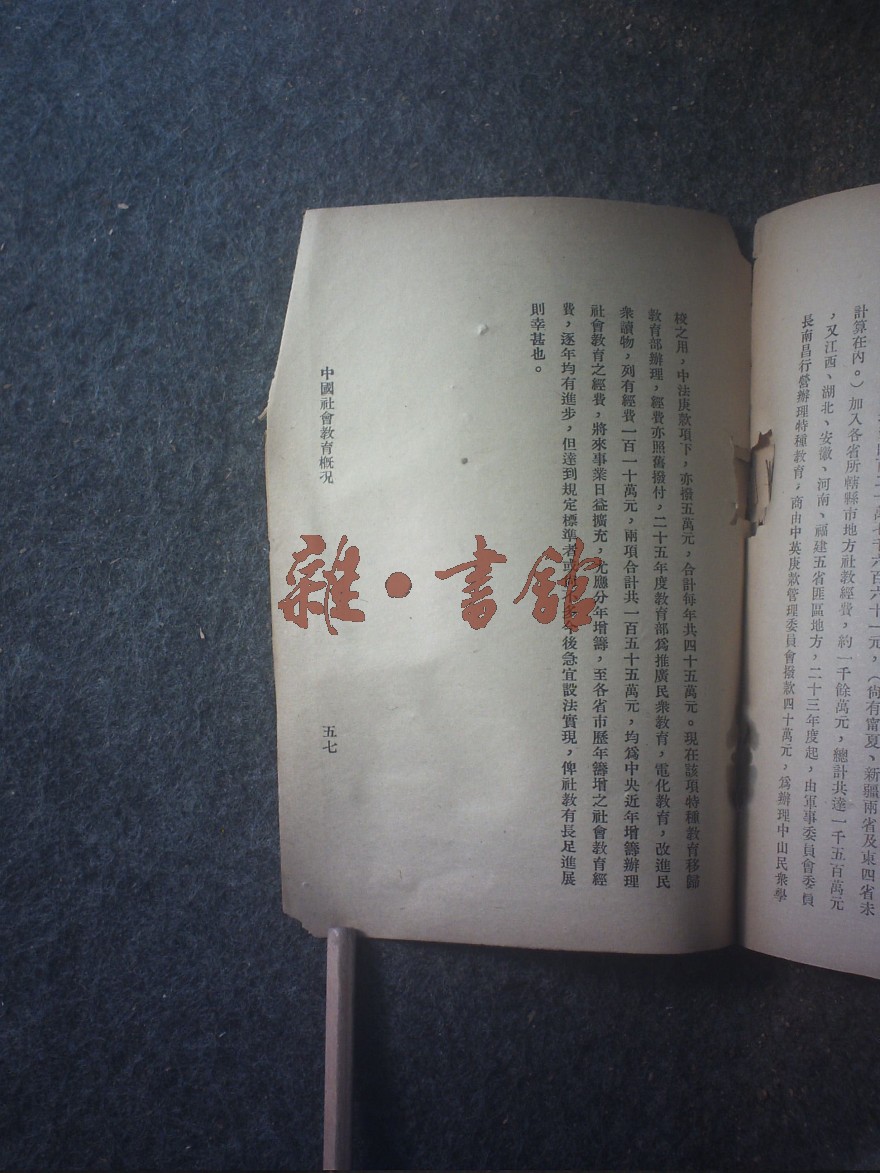 百六十一元，（尙有甯夏、新疆兩省及東四省未
計算在內。）加入各省所轄縣市地方社教經費，約一千餘萬元，總計共達一千五百萬元
，又江西、湖北、安徽、河南、福建五省匪區地方，二十三年度起，由軍事委員會委員
長南昌行營辦理特種教育，商由中英庚款管理委員會撥款四十萬元，爲辦理中山民衆學
校之用，中法庚款項下，亦撥五萬元，合計每年共四十五萬元。現在該項特種教育移歸
教育部辦理，經費亦照舊撥付，二十五年度教育部爲推廣民衆教育，電化教育，改進民
衆讀物，列有經費一百一十萬元，兩項合計共一百五十五萬元，均爲中央近年增籌辦理
社會教育之經費，將來事業日益擴充，尤應分年增籌，至各省市歷年籌增之社會教育經
費，逐年均有進步，但達到規定標準者或年後急宜設法實現，俾社教有長足進展
則幸甚也。
中國社會教育概況
五七
雜·書館